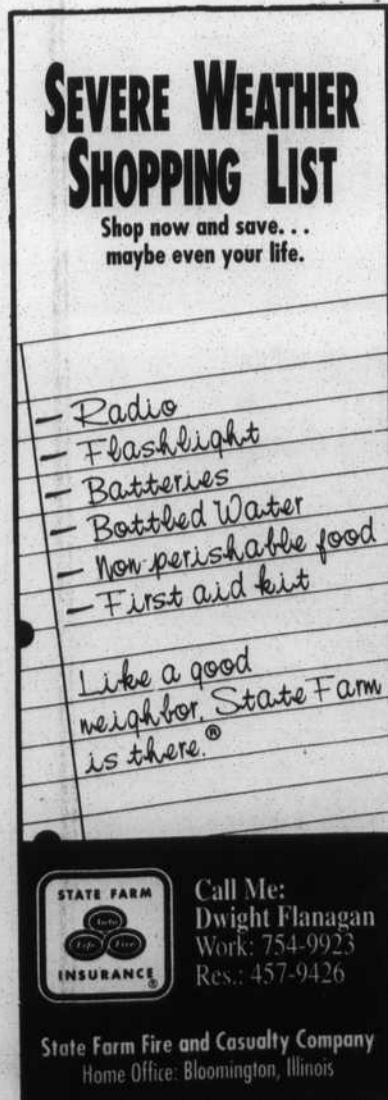 SEVERE WEATHER
SHOPPING LIST
Shop now and save. . .
maybe even your life.
– Radio
– Flashlight
– Batteries
– Bottled Water
– Non-perishable food
– First aid kit
Like a good
neighbor, State Farm
is there.®
STATE FARM
Auto
Life Fire
INSURANCE®
Call Me:
Dwight Flanagan
Work: 754-9923
Res.: 457-9426
State Farm Fire and Casualty Company
Home Office: Bloomington, Illinois